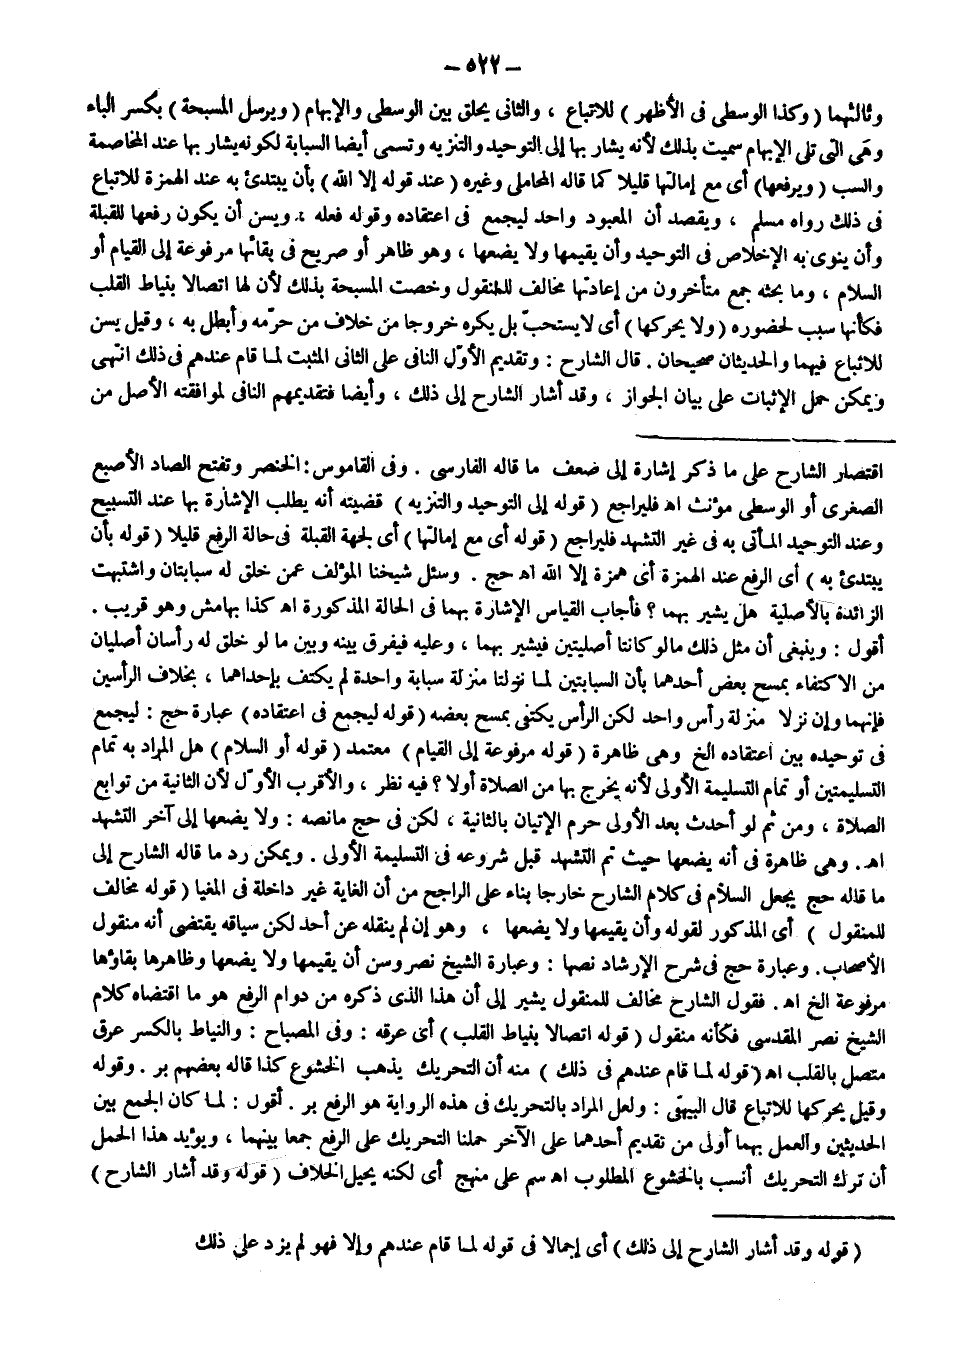 ـ ٥٢٢ ـ
وثالثهما ( وكذا الوسطى فى الأظهر ) للاتباع ، والثانى يحلق بين الوسطى والإبهام ( ويرسل المسبحة ) بكسر الباء
وهى التى تلى الإبهام سميت بذلك لأنه يشار بها إلى التوحيد والتنزيه وتسمى أيضا السبابة لكونه يشار بها عند المخاصمة
والسب ( ويرفعها ) أى مع إمالتها قليلا كما قاله المحاملى وغيره ( عند قوله إلا الله ) بأن يبتدئ به عند الهمزة للاتباع
فى ذلك رواه مسلم ، ويقصد أن المعبود واحد ليجمع فى اعتقاده وقوله فعله ، ويسن أن يكون رفعها للقبلة
وأن ينوى به الإخلاص فى التوحيد وأن يقيمها ولا يضعها ، وهو ظاهر أو صريح فى بقائها مرفوعة إلى القيام أو
السلام ، وما بحثه جمع متأخرون من إعادتها مخالف للمنقول وخصت المسبحة بذلك لأن لها اتصالا بنياط القلب
فكأنها سبب لحضوره ( ولا يحركها ) أى لا يستحبّ بل يكره خروجا من خلاف من حرّمه وأبطل به ، وقيل يسن
للاتباع فيهما والحديثان صحيحان . قال الشارح : وتقديم الأوّل النافى على الثانى المثبت لما قام عندهم فى ذلك انتهى
ويمكن حمل الإثبات على بيان الجواز ، وقد أشار الشارح إلى ذلك ، وأيضا فتقديمهم النافى لموافقته الأصل من
اقتصار الشارح على ما ذكر إشارة إلى ضعف ما قاله الفارسى . وفى القاموس : الخنصر وتفتح الصاد الأصبع
الصغرى أو الوسطى مؤنث اه فليراجع ( قوله إلى التوحيد والتنزيه ) قضيته أنه يطلب الإشارة بها عند التسبيح
وعند التوحيد المأتى به فى غير التشهد فليراجع ( قوله أى مع إمالتها ) أى لجهة القبلة فى حالة الرفع قليلا ( قوله بأن
يبتدئ به ) أى الرفع عند الهمزة أى همزة إلا الله اه حج . وسئل شيخنا المؤلف عمن خلق له سبابتان واشتبهت
الزائدة بالأصلية هل يشير بهما ؟ فأجاب القياس الإشارة بهما فى الحالة المذكورة اه كذا بهامش وهو قريب .
أقول : وينبغى أن مثل ذلك مالو كانتا أصليتين فيشير بهما ، وعليه فيفرق بينه وبين ما لو خلق له رأسان أصليان
من الاكتفاء بمسح بعض أحدهما بأن السبابتين لما نولتا منزلة سبابة واحدة لم يكتف بإحداهما ، بخلاف الرأسين
فإنهما وإن نزلا منزلة رأس واحد لكن الرأس يكتفى بمسح بعضه ( قوله ليجمع فى اعتقاده ) عبارة حج : ليجمع
فى توحيده بين اعتقاده الخ وهى ظاهرة ( قوله مرفوعة إلى القيام ) معتمد ( قوله أو السلام ) هل المراد به تمام
التسليمتين أو تمام التسليمة الأولى لأنه يخرج بها من الصلاة أولا ؟ فيه نظر ، والأقرب الأوّل لأن الثانية من توابع
الصلاة ، ومن ثم لو أحدث بعد الأولى حرم الإتيان بالثانية ، لكن فى حج مانصه : ولا يضعها إلى آخر التشهد
اه . وهى ظاهرة فى أنه يضعها حيث تم التشهد قبل شروعه فى التسليمة الأولى . ويمكن رد ما قاله الشارح إلى
ما قاله حج يجعل السلام فى كلام الشارح خارجا بناء على الراجح من أن الغاية غير داخلة فى المغيا ( قوله مخالف
للمنقول ) أى المذكور لقوله وأن يقيمها ولا يضعها ، وهو إن لم ينقله عن أحد لكن سياقه يقتضى أنه منقول
الأصحاب . وعبارة حج فى شرح الإرشاد نصها : وعبارة الشيخ نصر وسن أن يقيمها ولا يضعها وظاهرها بقاؤها
مرفوعة الخ اه . فقول الشارح مخالف للمنقول يشير إلى أن هذا الذى ذكره من دوام الرفع هو ما اقتضاه كلام
الشيخ نصر المقدسى فكأنه منقول ( قوله اتصالا بنياط القلب ) أى عرقه : وفى المصباح : والنياط بالكسر عرق
متصل بالقلب اه ( قوله لما قام عندهم فى ذلك ) منه أن التحريك يذهب الخشوع كذا قاله بعضهم بر . وقوله
وقيل يحركها للاتباع قال البيهقى : ولعل المراد بالتحريك فى هذه الرواية هو الرفع بر . أقول : لما كان الجمع بين
الحديثين والعمل بهما أولى من تقديم أحدهما على الآخر حملنا التحريك على الرفع جمعا بينهما ، ويؤيد هذا الحمل
أن ترك التحريك أنسب بالخشوع المطلوب اه سم على منهج أى لكنه يحيل الخلاف ( قوله وقد أشار الشارح )
( قوله وقد أشار الشارح إلى ذلك ) أى إجمالا فى قوله لما قام عندهم وإلا فهو لم يزد على ذلك